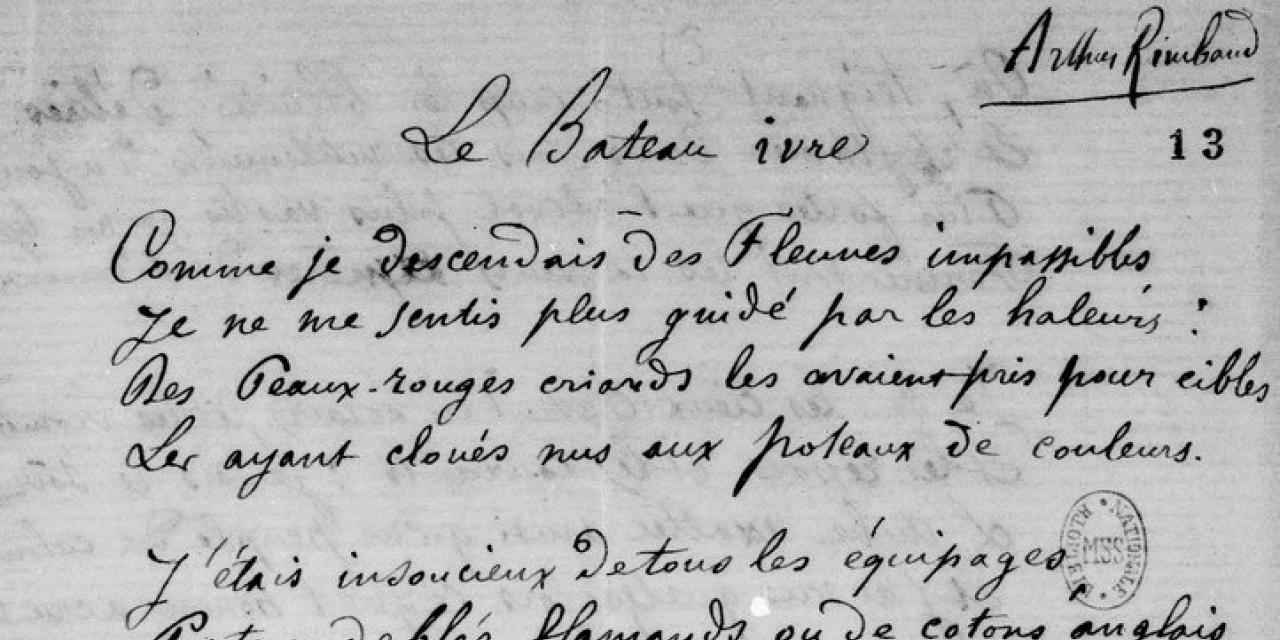 Arthur Rimbaud
Le Bateau ivre
13
Comme je descendais des Fleuves impassibles
Je ne me sentis plus guidé par les haleurs :
Des Peaux-rouges criards les avaient pris pour cibles
Les ayant cloués nus aux poteaux de couleurs.
BIBLIOTH. NATIONALE
MSS
J'étais insoucieux de tous les équipages,
Porteur de blés flamands ou de cotons anglais